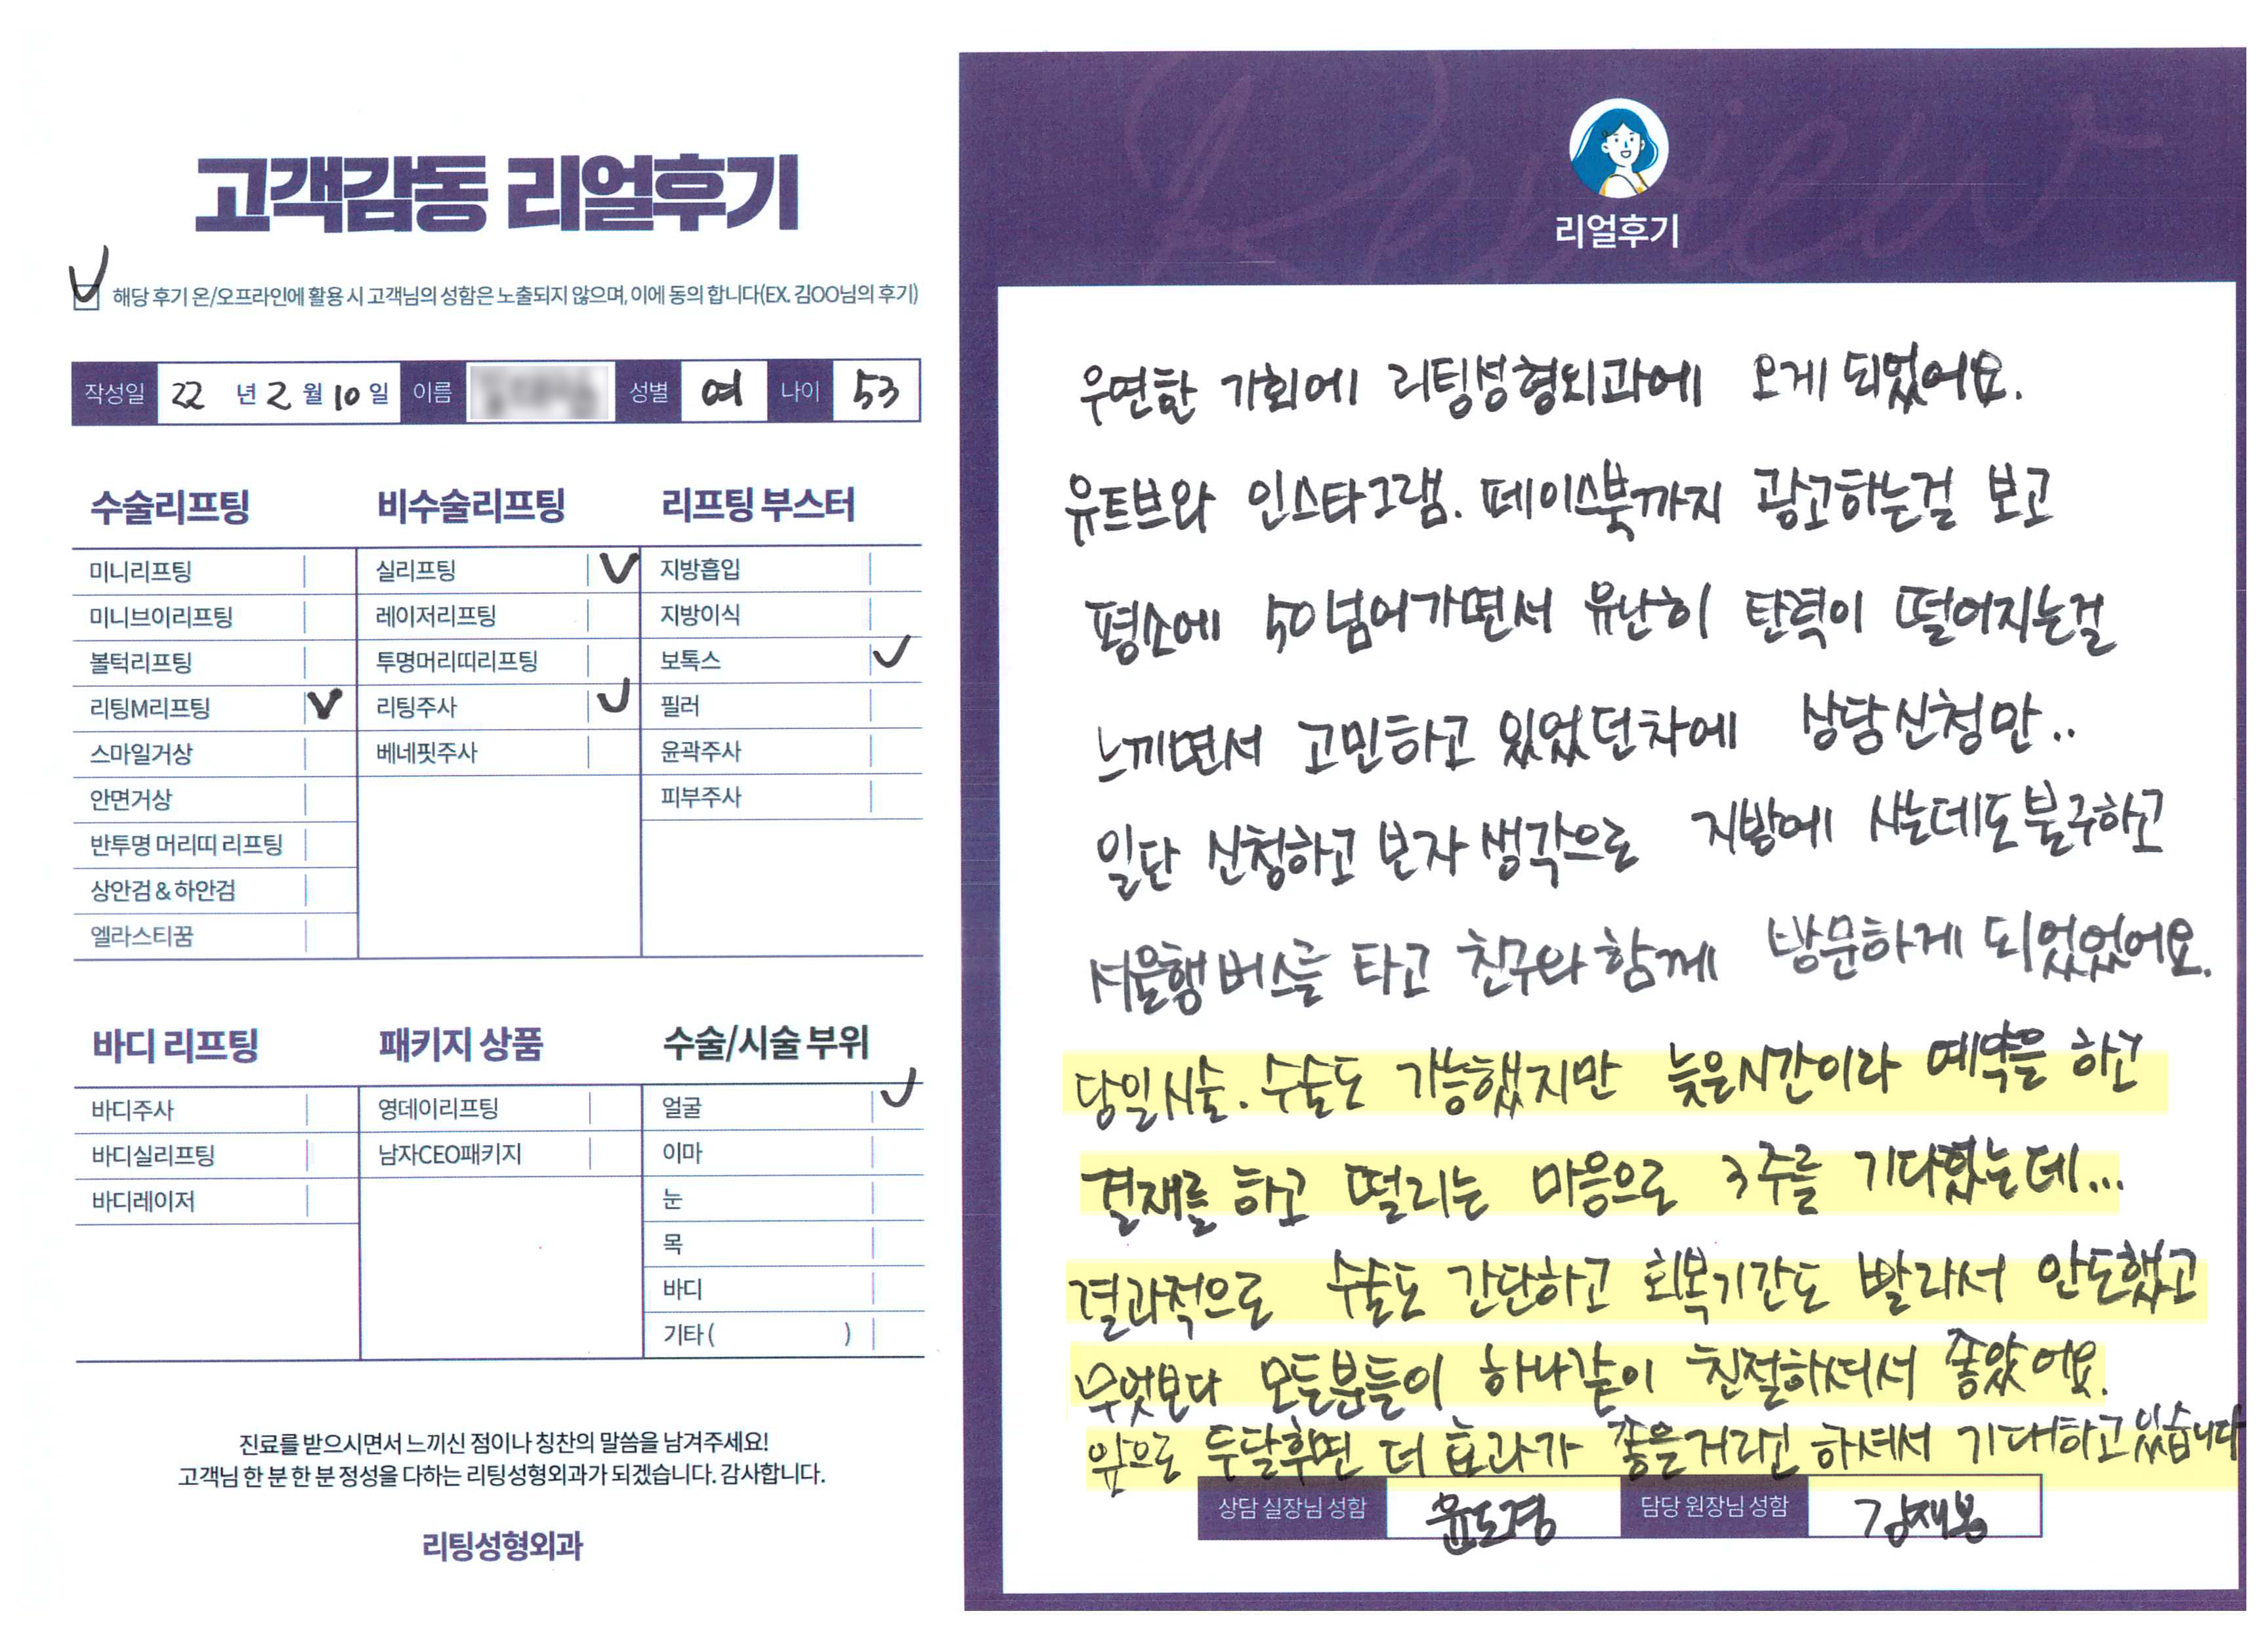 고객감동 리얼후기
해당 후기 온/오프라인에 활용 시 고객님의 성함은 노출되지 않으며, 이에 동의 합니다(EX. 김OO님의 후기)
작성일 22 년 2 월 10 일 이름 성별 여 나이 53
수술리프팅
미니리프팅
미니브이리프팅
볼턱리프팅
리팅M리프팅 V
스마일거상
안면거상
반투명 머리띠 리프팅
상안검 & 하안검
엘라스티꿈
비수술리프팅
실리프팅 V
레이저리프팅
투명머리띠리프팅
리팅주사 V
베네핏주사
리프팅 부스터
지방흡입
지방이식
보톡스 V
필러
윤곽주사
피부주사
바디 리프팅
바디주사
바디실리프팅
바디레이저
패키지 상품
영데이리프팅
남자CEO패키지
수술/시술 부위
얼굴 V
이마
눈
목
바디
기타 ( )
진료를 받으시면서 느끼신 점이나 칭찬의 말씀을 남겨주세요!
고객님 한 분 한 분 정성을 다하는 리팅성형외과가 되겠습니다. 감사합니다.
리팅성형외과
Review
리얼후기
우연한 기회에 리팅성형외과에 오게 되었어요.
유트브와 인스타그램. 페이스북까지 광고하는걸 보고
평소에 50넘어가면서 유난히 탄력이 떨어지는걸
느끼면서 고민하고 있었던차에 상담신청만..
일단 신청하고 보자 생각으로 지방에 사는데도불구하고
서울행 버스를 타고 친구와 함께 방문하게 되었었어요.
당일시술. 수술도 가능했지만 늦은시간이라 예약을 하고
결재를 하고 떨리는 마음으로 3주를 기다렸는데...
결과적으로 수술도 간단하고 회복기간도 빨라서 안도했고
무엇보다 모든분들이 하나같이 친절하셔서 좋았어요.
앞으로 두달후면 더 효과가 좋을거라고 하셔서 기대하고있습니다
상담 실장님 성함 윤도경 담당 원장님 성함 김재봉